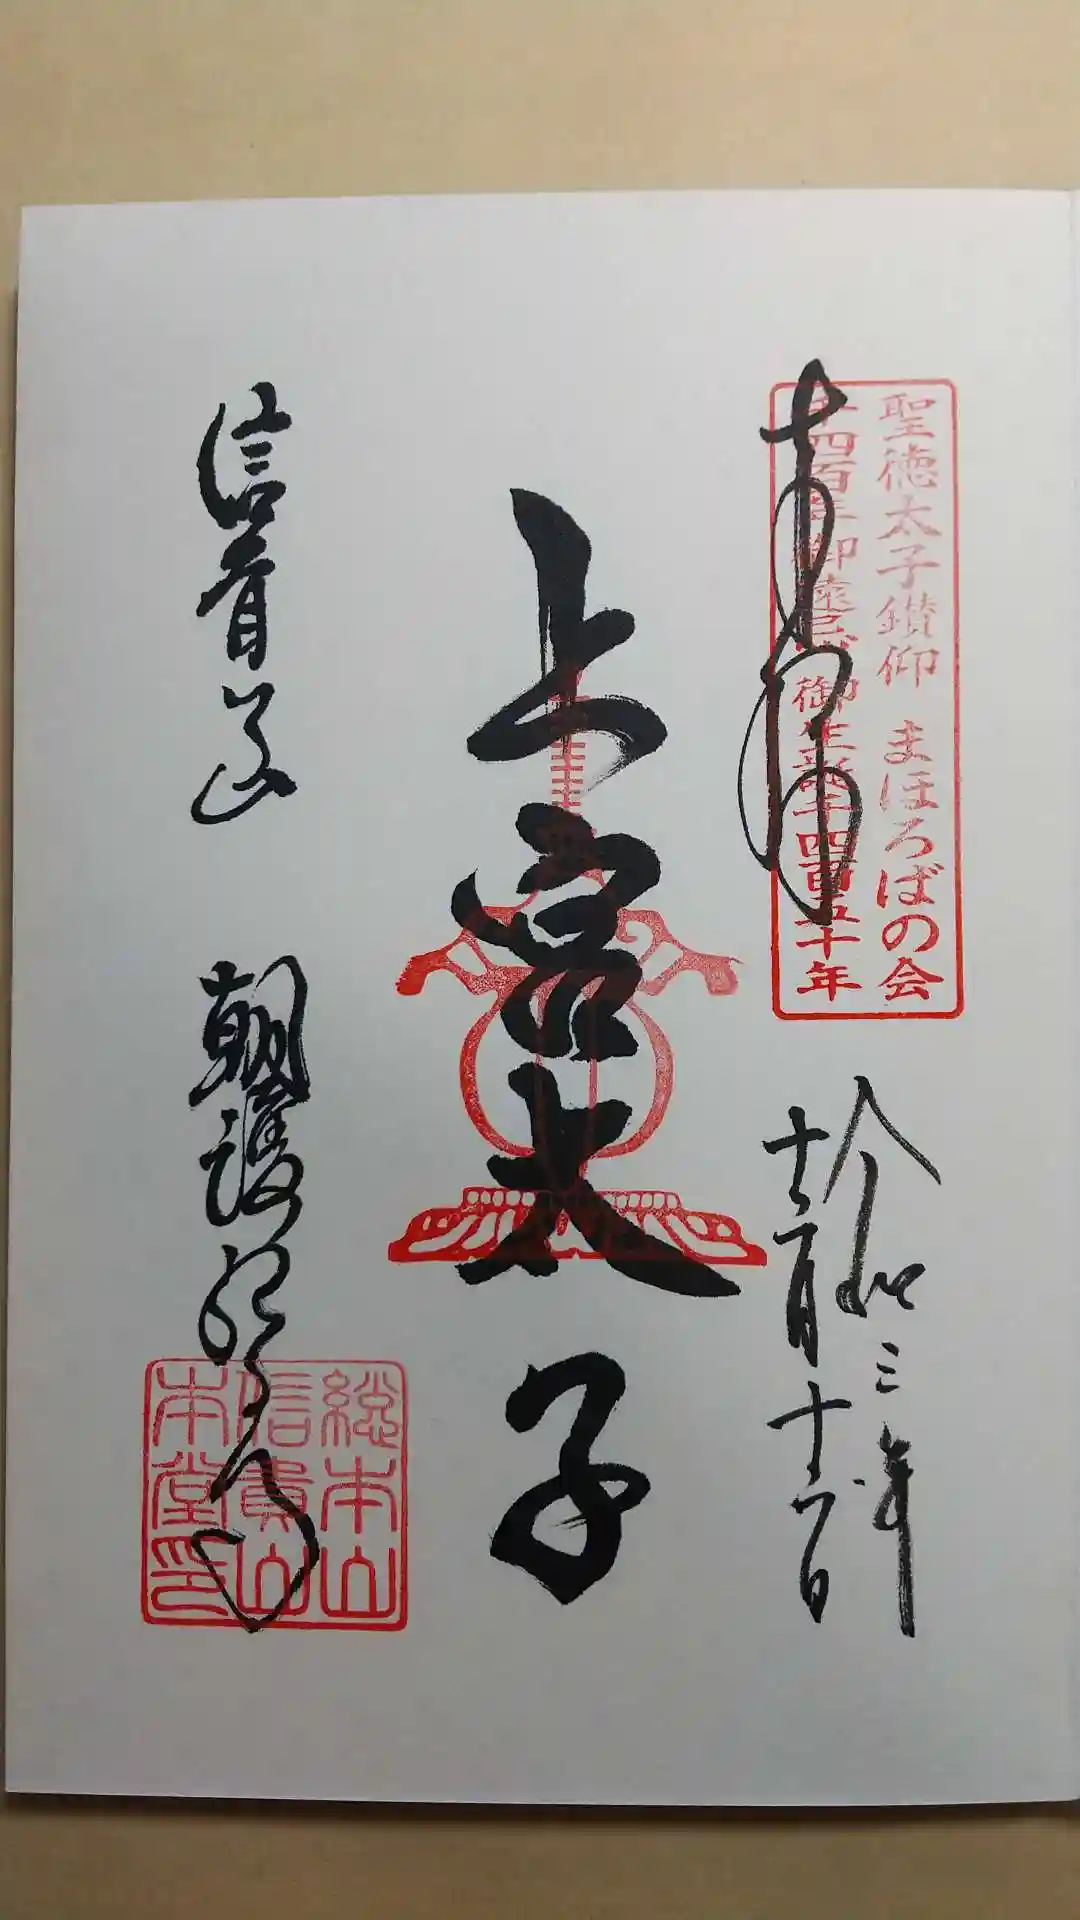 聖徳太子鑽仰 まほろばの会
千四百年御遠忌 御生誕千四百五十年
奉拝
令和三年
十二月十六日
上宮太子
信貴山 朝護孫子寺
総本山
信貴山
本堂印